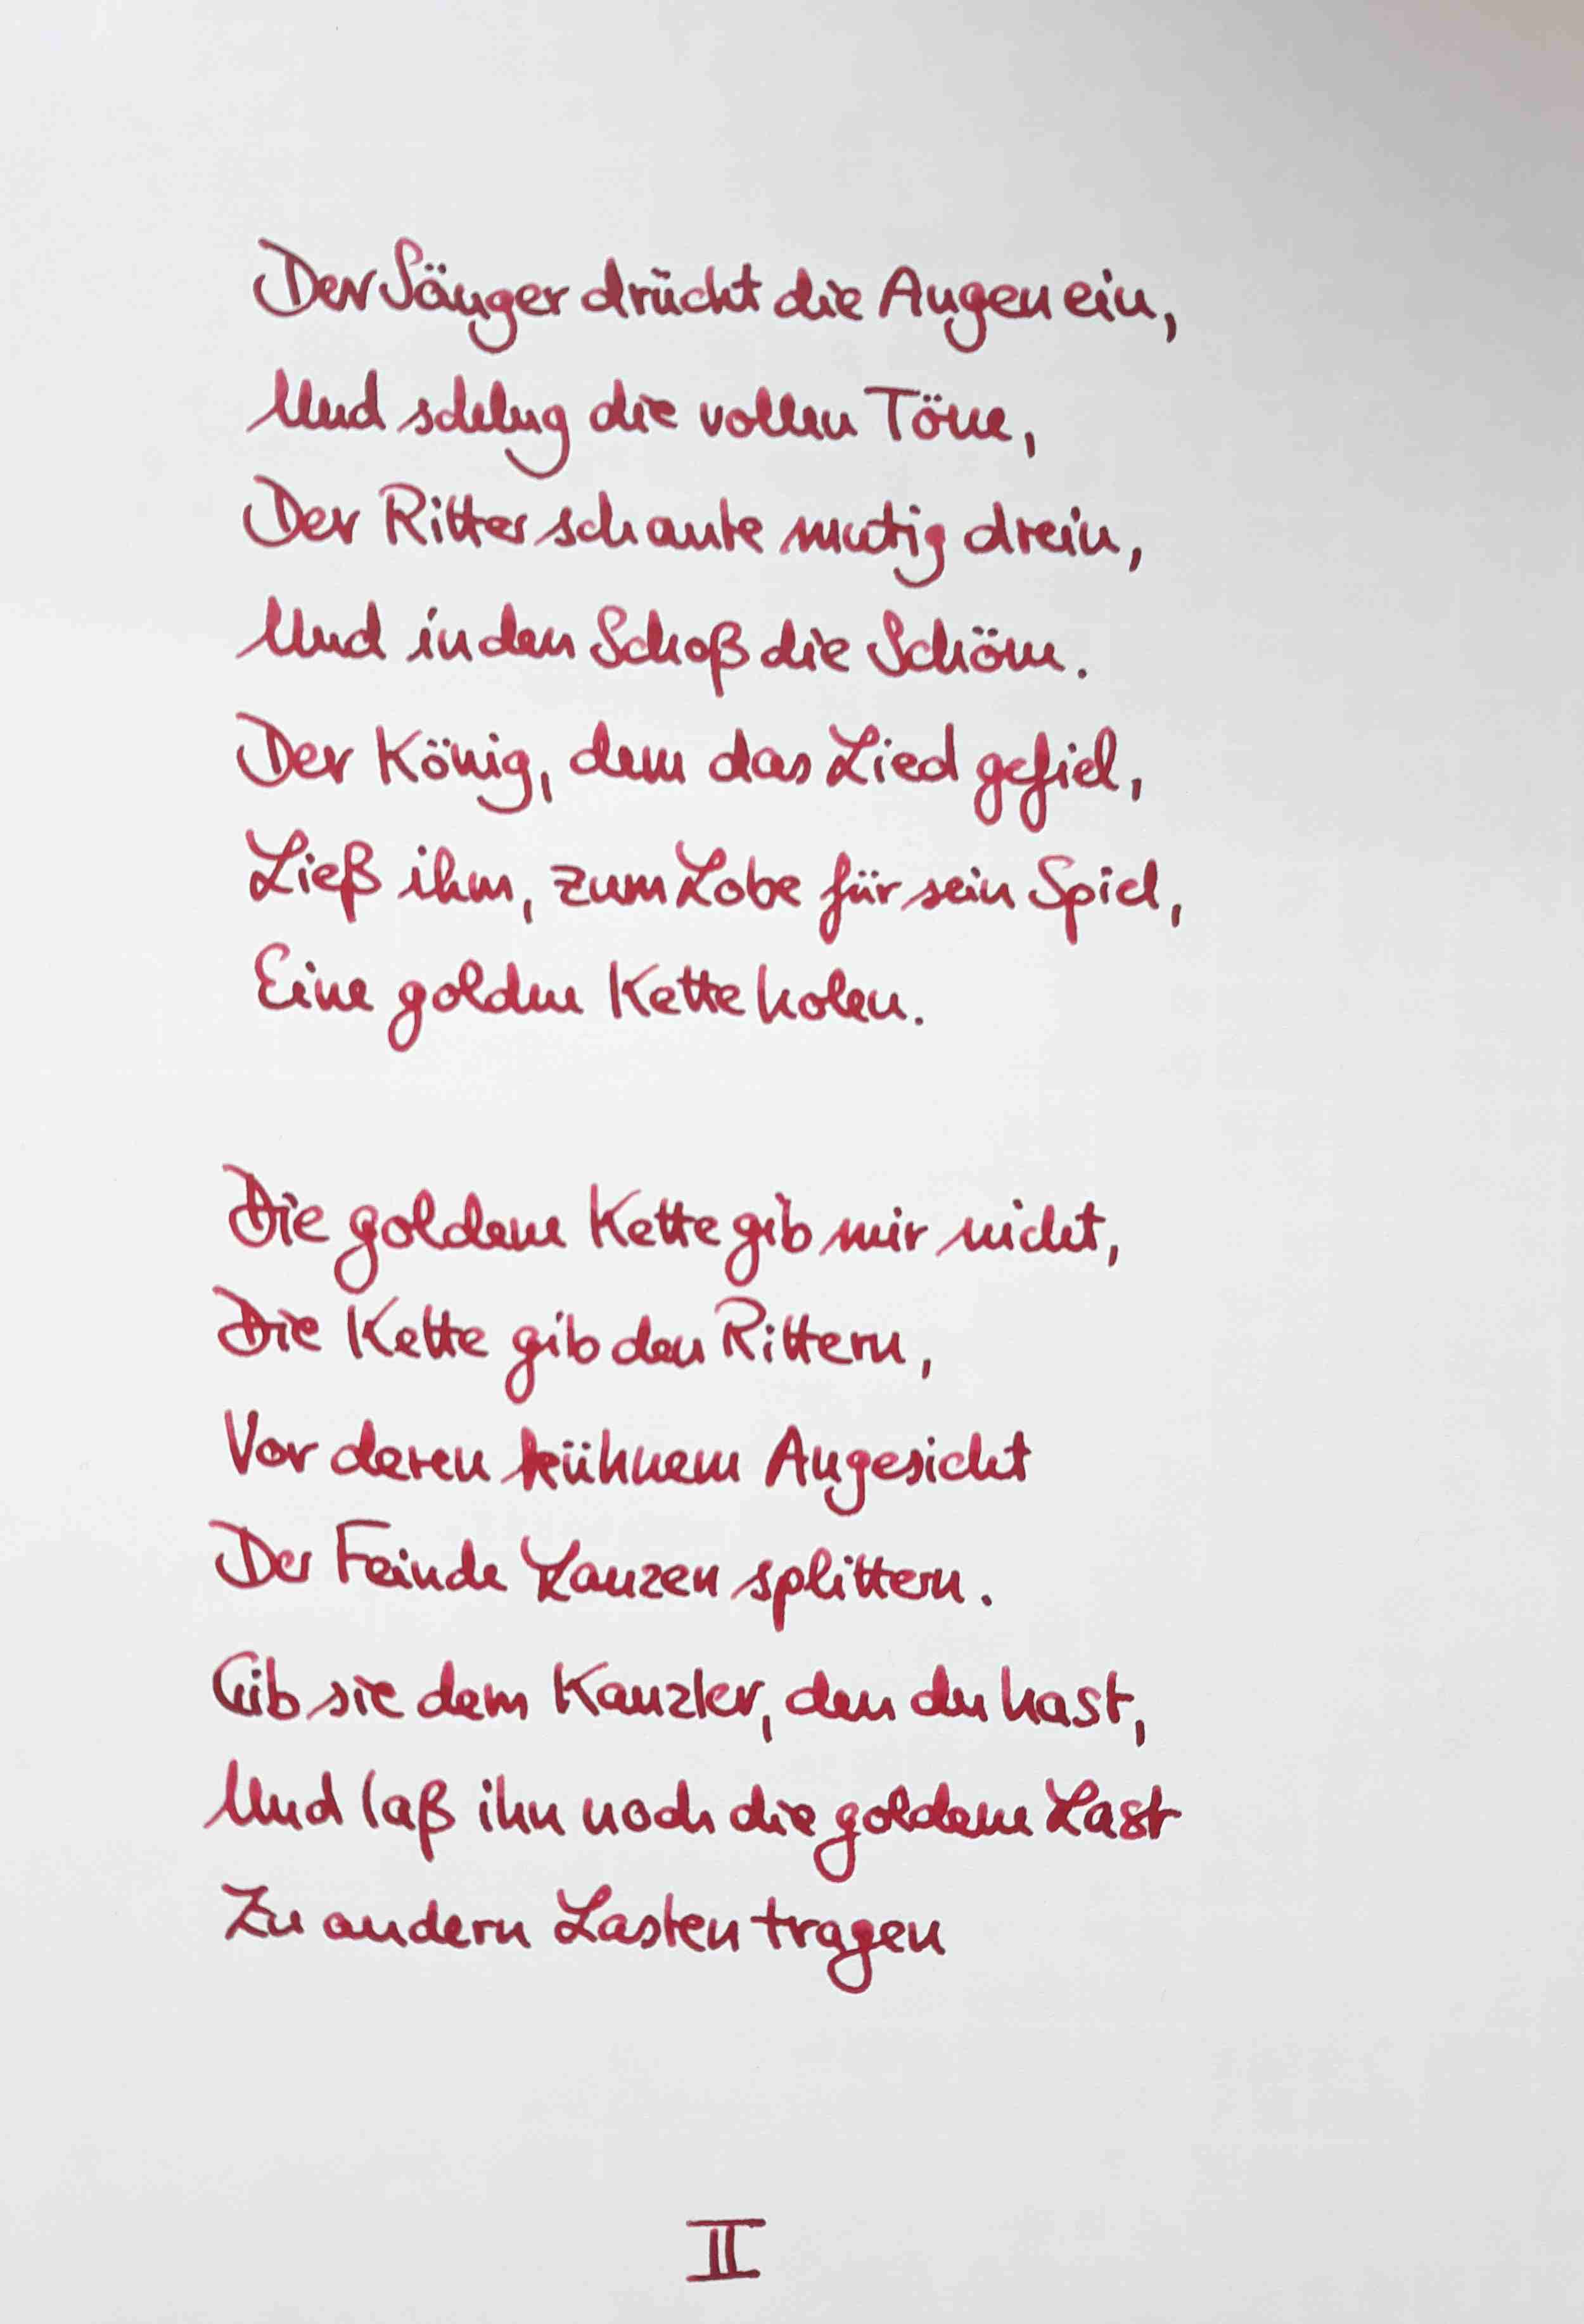 Der Sänger drückt die Augen ein,
Und schlug die vollen Töne,
Der Ritter schaute mutig drein,
Und in den Schoß die Schöne.
Der König, dem das Lied gefiel,
Ließ ihm, zum Lobe für sein Spiel,
Eine goldne Kette holen.
Die goldene Kette gib mir nicht,
Die Kette gib den Rittern,
Vor deren kühnem Angesicht
Der Feinde Lanzen splittern.
Gib sie dem Kanzler, den du hast,
Und laß ihn noch die goldene Last
Zu andern Lasten tragen
II